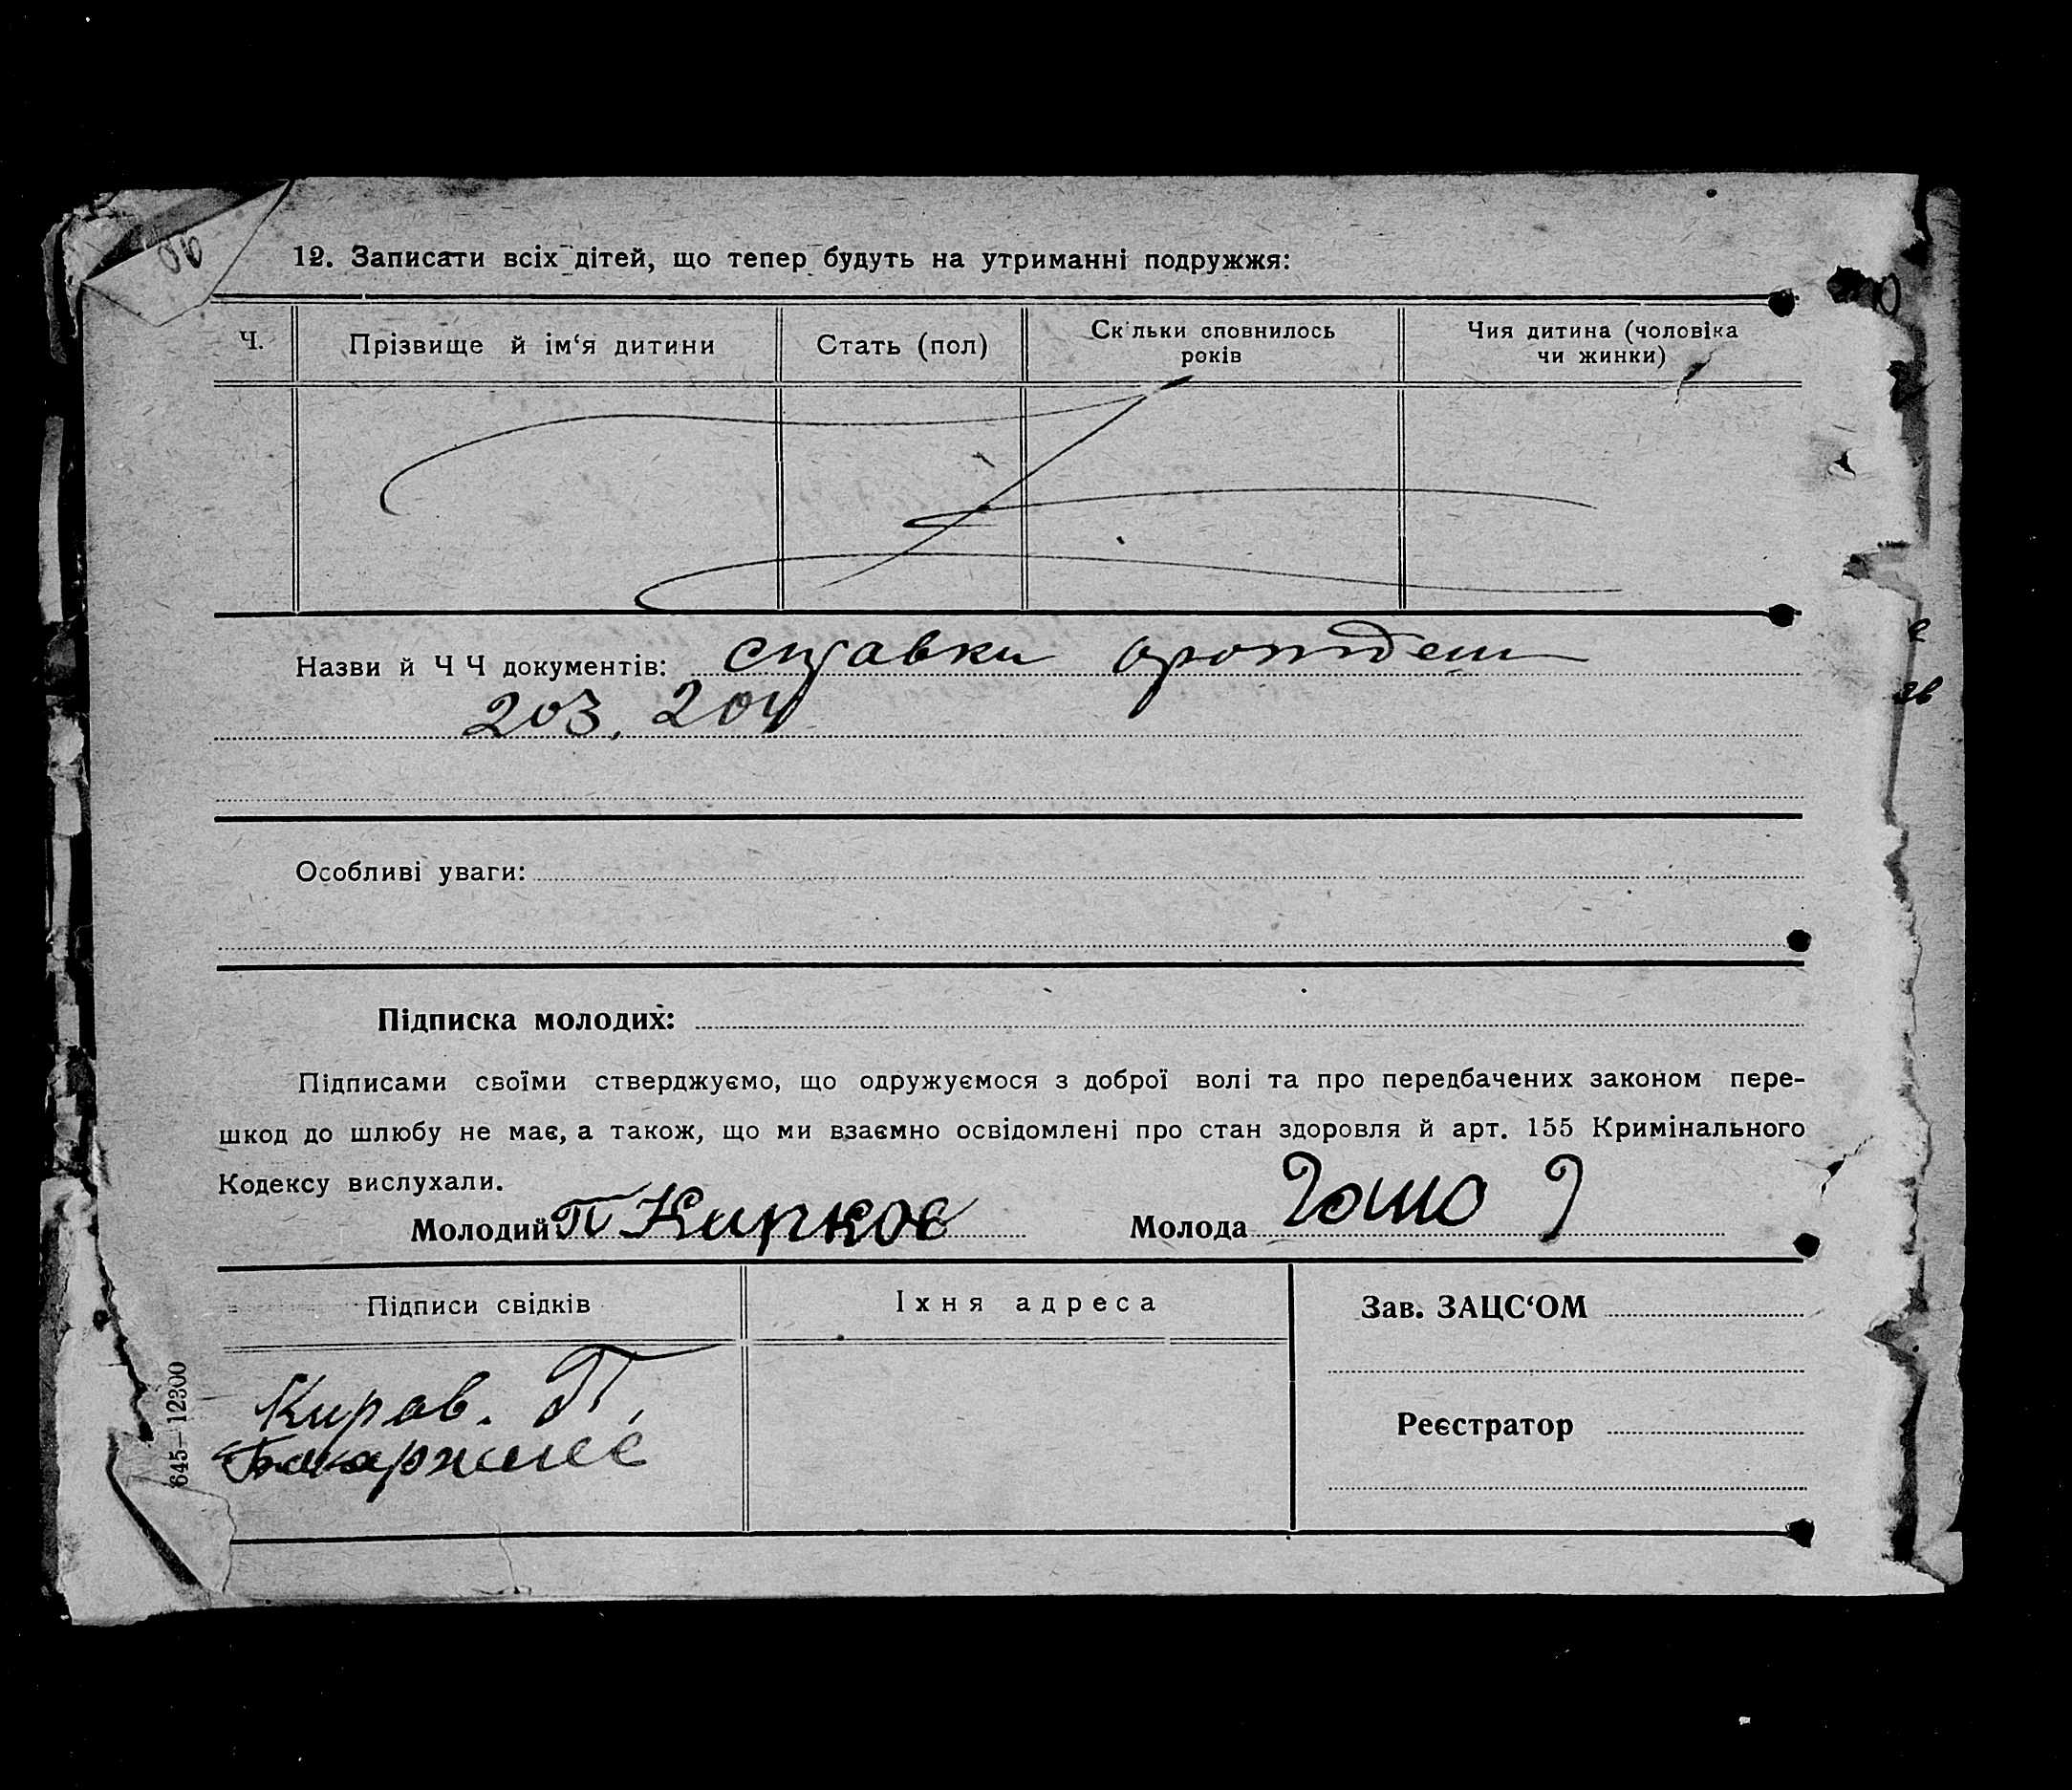 12. Записати всіх дітей, що тепер будуть на утриманні подружжя:
Ч.
Прізвище й ім‘я дитини
Стать (пол)
Скільки сповнилось
років
Чия дитина (чоловіка
чи жинки)
Назви й Ч Ч документів: справки
203, 204
Особливі уваги:
Підписка молодих:
Підписами своїми стверджуємо, що одружуємося з доброї волі та про передбачених законом пере-
шкод до шлюбу не має, а також, що ми взаємно освідомлені про стан здоровля й арт. 155 Кримінального
Кодексу вислухали.
Молодий П Кирков Молода
Підписи свідків
Їхня адреса
Зав. ЗАЦС‘ОМ
Киров. П,
Реєстратор
645—12300